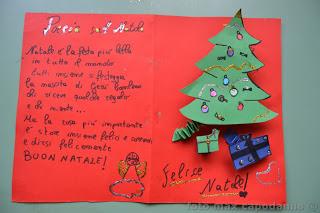 Poesia sul Natale
Natale è la festa più bella
in tutto il mondo
tutti insieme si festeggia
la nascita di Gesù bambino
si riceve qualche regalo
e da niente...
Ma la cosa più importante
è stare insieme felici e
e dirsi felicemente
BUON NATALE!
Felice
Natale!